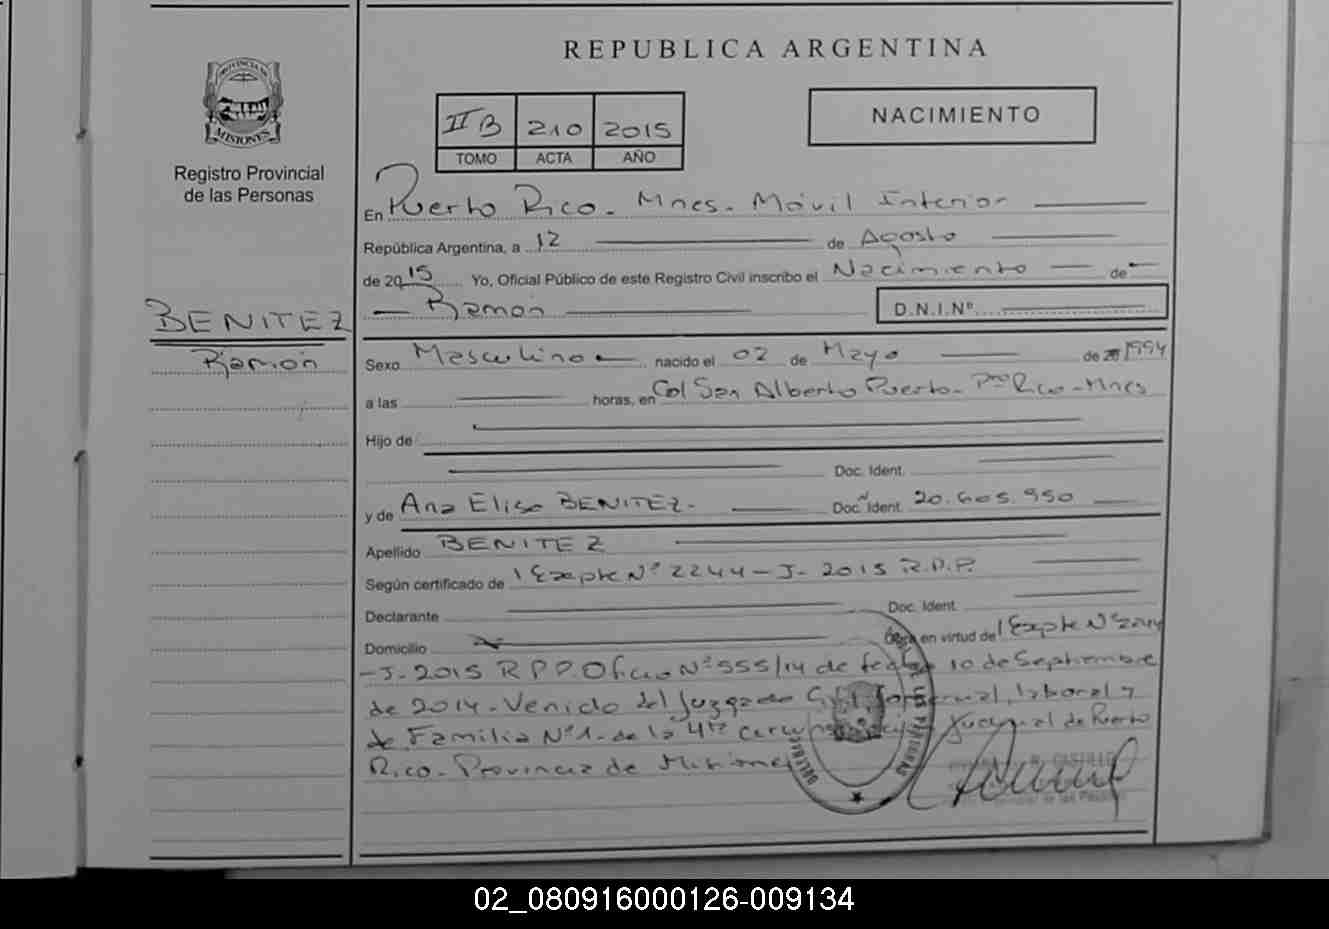 REPUBLICA ARGENTINA
PROVINCIA DE
MISIONES
Registro Provincial
de las Personas
II B 210 2015
TOMO ACTA AÑO
NACIMIENTO
BENITEZ
Ramón
En Puerto Rico - Mnes - Móvil Interior
República Argentina, a 12 de Agosto
de 2015 Yo, Oficial Público de este Registro Civil inscribo el Nacimiento de
Ramón D.N.I.Nº
Sexo Masculino nacido el 02 de Mayo de 1994
a las horas, en Col San Alberto Puerto - Pto Rico - Mnes
Hijo de
Doc. Ident.
y de Ana Elisa BENITEZ. Doc. Ident. 20.605.950
Apellido BENITEZ
Según certificado de Expte Nº 2244 - J - 2015 R.P.P.
Declarante Doc. Ident.
Domicilio Obra en virtud de Expte Nº 2244
- J - 2015 R P P. Oficio Nº 555/14 de fecha 10 de Septiembre
de 2014 - Venido del Juzgado Civil, Comercial, laboral y
de Familia Nº 1 - de la 4ta Circunscripción Judicial de Puerto
Rico - Provincia de Misiones
CASTILLO
02_080916000126-009134